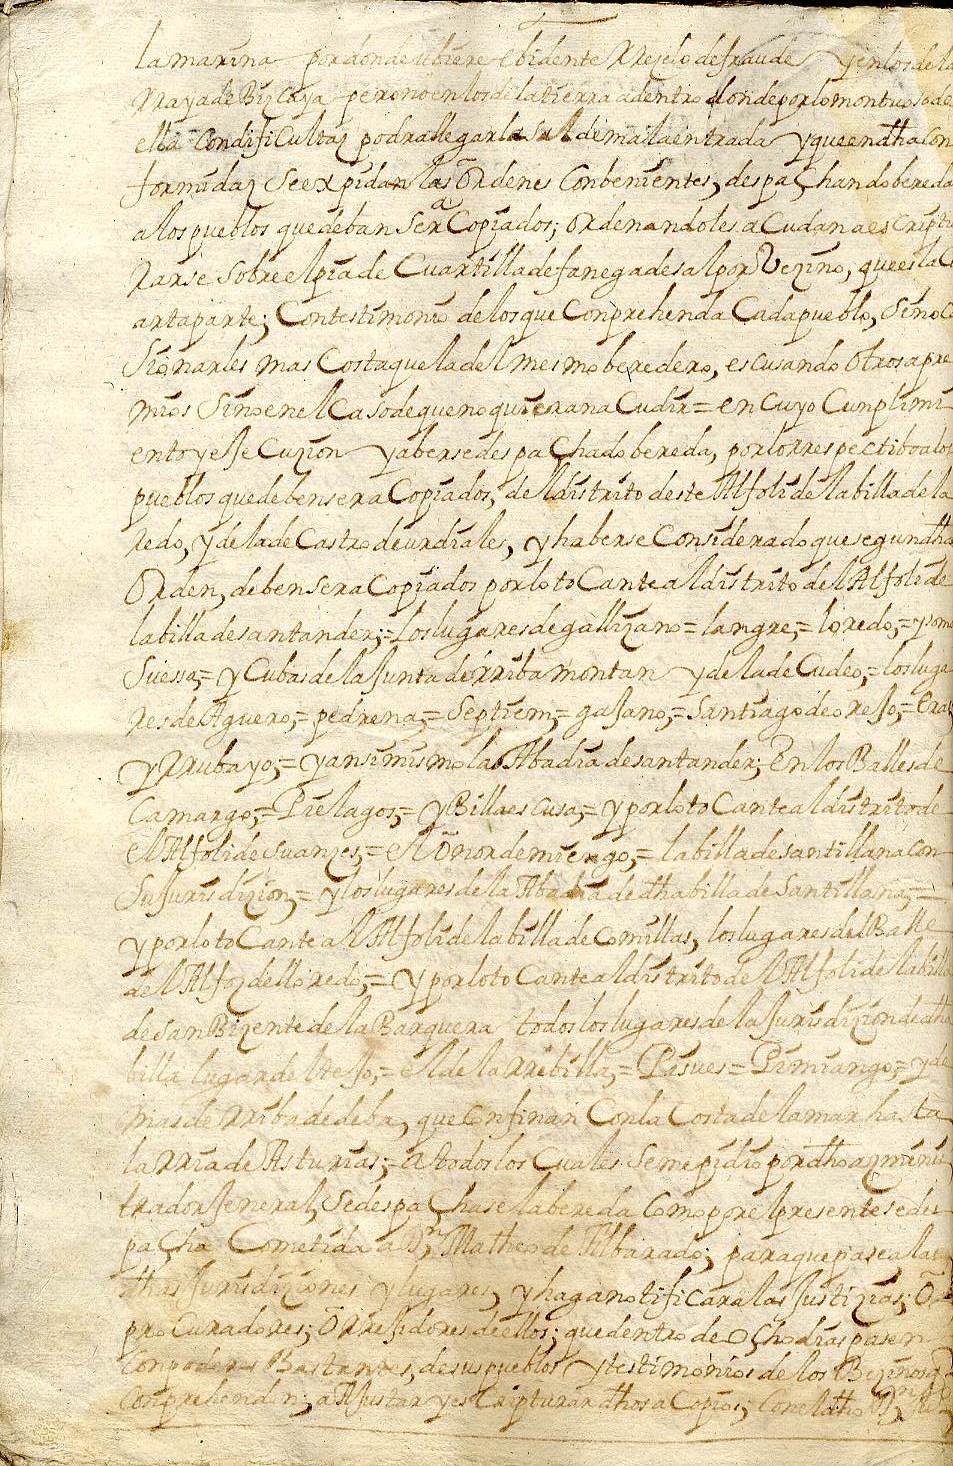 la marina por donde ubiere ebidente rreselo de fraude y en los de la
rraya de Bizcaya pero no en los de la tierra adentro donde por lo montuoso de
ella con dificultaz podra llegar la sal de mala entrada y que en dha con
formidaz se expidan las ordenes conbenientes, despachando bereda
a los pueblos que deban ser acopiados; ordenandoles acudan a escriptu
rarse sobre el pia de cuartilla de fanega de sal por vezino, que es la cu
arta parte; con testimonio de los que conprehenda cada pueblo, sin oca
sionarles mas costa que la del mesmo beredero, escusando otros apre
mios sino en el caso de que no quieran acudir = en cuyo cunplimi
ento y esecuzion y aberse despachado bereda, por lo rrespectibo a los
pueblos que deben ser acopiados, del distrito deste Alfoli de la billa de la
redo, y de la de Castro de urdiales, y haberse considerado que segun dha
orden, deben ser acopiados por lo tocante al distrito del Alfoli de
la billa de santander; = los lugares de gallizano = langre, = loredo, = y somo
Suessa, = y Cubas de la Junta de rriba montan y de la de Cudeo, = los luga
res de Aguero, = pedrena, = Septiem, = gajano, = Santiago de orejo, =
y rrubayo, = y ansimismo la Abadia de santander; En los Balles de
Camargo, = Pielagos, = y Billaescusa, = y por lo tocante al distrito de
el Alfoli de suanzes, = el onor de miengo, = la billa de santillana con
su jurisdizion, = y los lugares de la Abadia de dha billa de Santillana, =
y por lo tocante al Alfoli de la billa de Comillas, los lugares del Balle
del Alfoz de lloredo, = y por lo tocante al distrito del Alfoli de la billa
de San Bizente de la Barquera todos los lugares de la Jurisdizion de dha
billa lugar del tejo, = el de la rrebilla, = Pesues = Pimiango, = y de
mas de rriba de deba, que confinan con la costa de la mar hasta
la rria de Asturias; = a todos los cuales se me pidio por dho azminis
trador Jeneral, se despachase la bereda como por el presente se des
pacha cometida a Dn Matheo de Albarado; para que pase a las
dhas Jurisdiziones y lugares, y haga notificar a las Justizias; o
procuradores; o rrejidores de ellos; que dentro de ocho dias pasen
con poderes Bastantes, de sus pueblos y testimonios de los Bezinos q
conprehenden; a Ajustar y escripturar dhos acopios; con el dho Dn